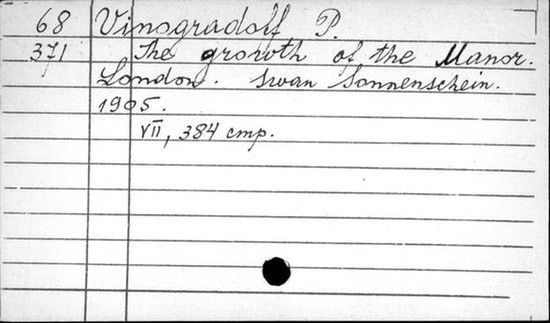 68 Vinogradoff P.
371 The growth of the Manor.
London. Swan Sonnenschein.
1905.
VII, 384 cmp.